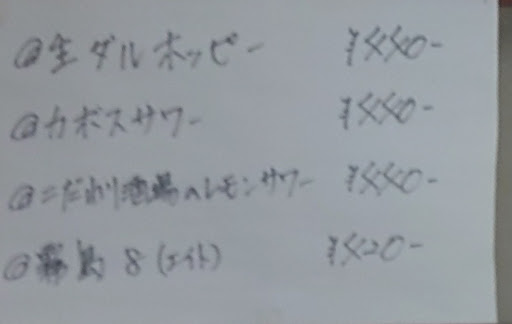 @生ダルホッピー ¥550-
@カボスサワー ¥550-
@こだわり酒場のレモンサワー ¥550-
@霧島 8(エイト) ¥520-